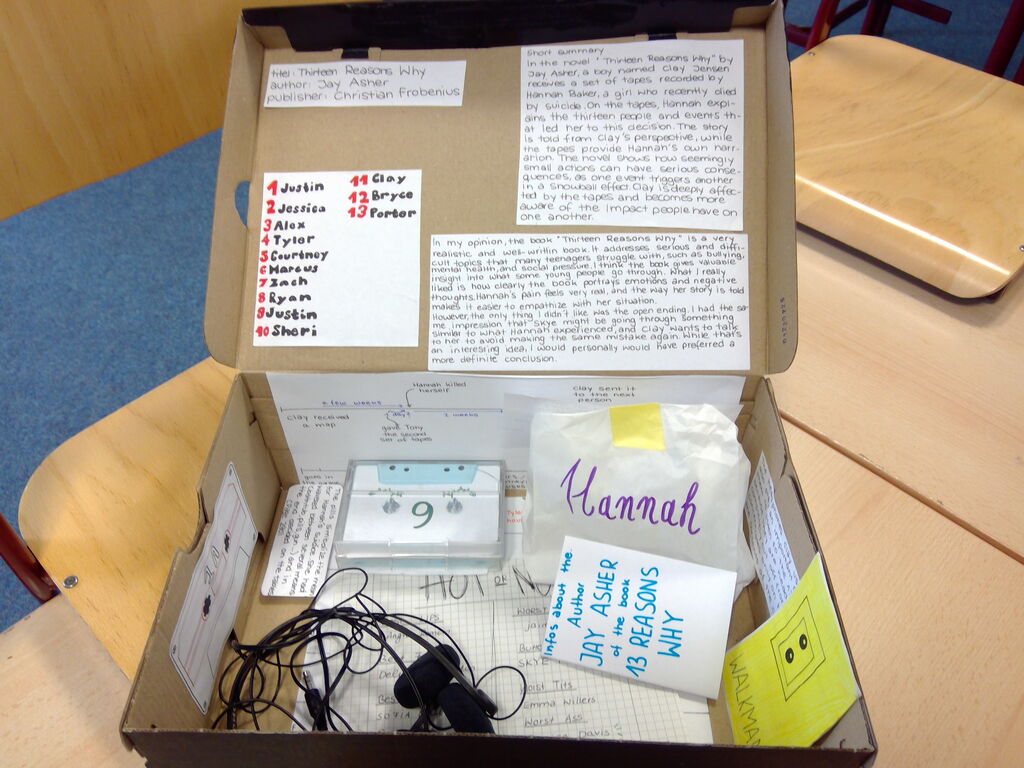 titel: Thirteen Reasons Why
author: Jay Asher
publisher: Christian Frobenius
short summary
In the novel "Thirteen Reasons Why" by
Jay Asher, a boy named Clay Jensen
receives a set of tapes recorded by
Hannah Baker, a girl who recently died
by suicide. On the tapes, Hannah expl-
ains the thirteen people and events th-
at led her to this decision. The story
is told from Clay's perspective, while
the tapes provide Hannah's own narr-
arion. The novel shows how seemingly
small actions can have serious conse-
quences, as one event triggers another
in a snowball effect. Clay is deeply affec-
ted by the tapes and becomes more
aware of the impact people have on
one another.
1 Justin
2 Jessica
3 Alex
4 Tyler
5 Courtney
6 Marcus
7 Zach
8 Ryan
9 Justin
10 Sheri
11 Clay
12 Bryce
13 Porter
In my opinion, the book "Thirteen Reasons Why" is a very
realistic and well-writtin book. It addresses serious and diffi-
cult topics that many teenagers struggle with, such as bullying,
mental health, and social pressure. I think the book gives valuable
insight into what some young people go through. What I really
liked is how clearly the book portrays emotions and negative
thoughts. Hannah's pain feels very real, and the way her story is told
makes it easier to empathize with her situation.
However, the only thing I didn't like was the open ending. I had the sa-
me impression that Skye might be going through something
similar to what Hannah experienced, and Clay wants to talk
to her to avoid making the same mistake again. While that's
an interesting idea, I would personally would have preferred a
more definite conclusion.
Hannah killed
herself
a few weeks
day?
2 weeks
clay received
a map
gave Tony
the second
set of tapes
clay sent it
to the next
person
9
Hannah
Infos about the
Author
JAY ASHER
of the book
13 REASONS
WHY
WALKMAN
HOT
Worst
SKYE
Emma Willers
Worst Ass
Davis